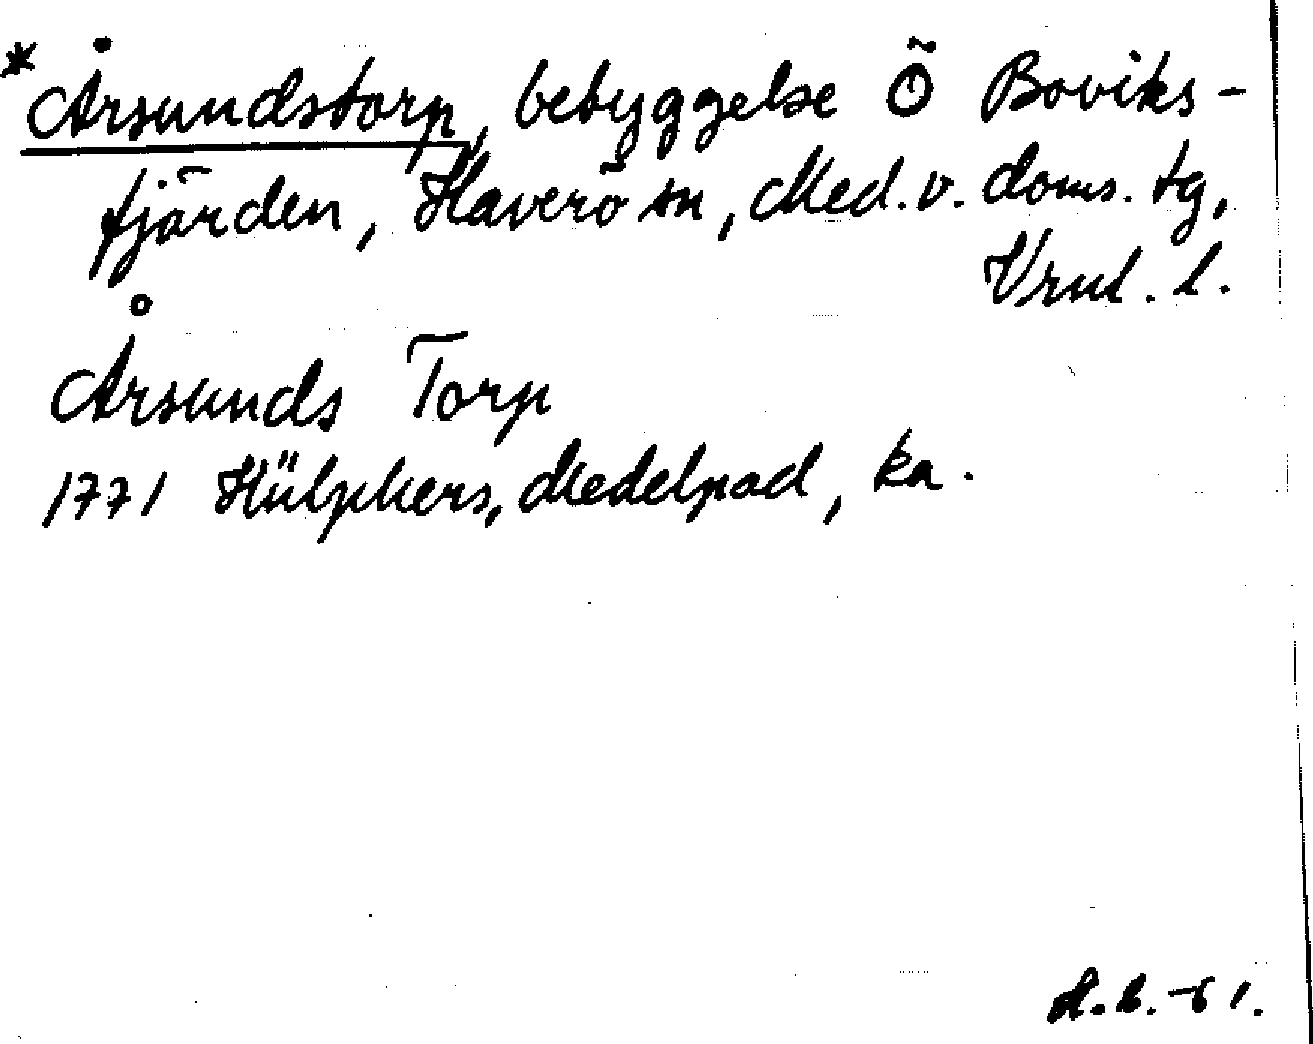 *Årsundstorp, bebyggelse Ö Boviks-
fjärden, Haverö sn, Med. v. doms. tg,
Vrnl. l.
Årsunds Torp
1771 Hülphers, Medelpad, ka.
H.b. -61.